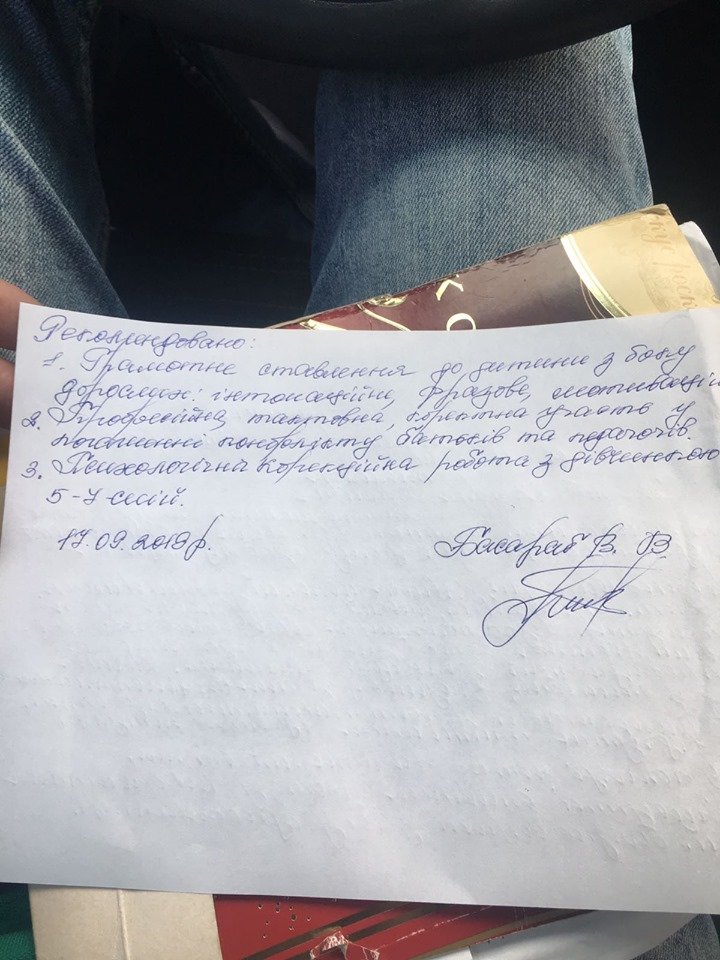 Рекомандовано:
1. Грамотне ставлення до дитини з боку
дорослих: інтонаційне, фразове, мотиваційн
2. Професійна, тактовна, коректна участь у
погашенні конфлікту батьків та педагогів.
3. Психологічна корекційна робота з дівчинкою
5-7-смій.
17.09.2019р.
Басараб В. В.